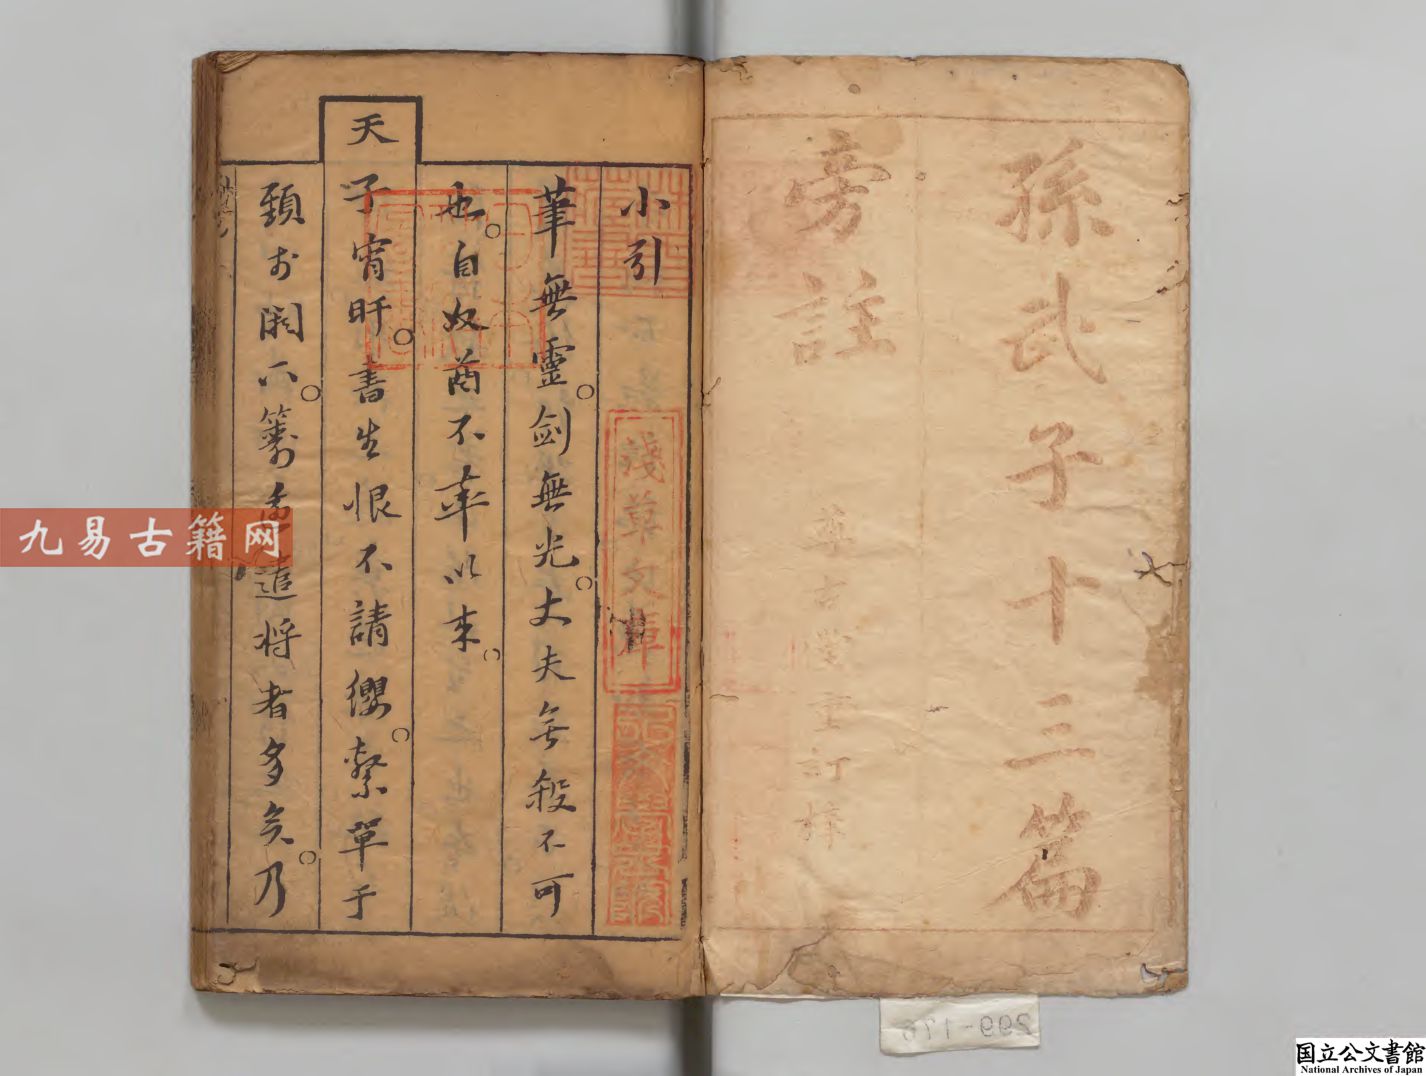 孫武子十三篇
旁註
尊古堂重訂梓
小引
筆無靈劍無光丈夫無殺不可
也自奴酋不率以来
天
子宵旰書生恨不請纓繫單于
頸於闕下籌邊追將者多矣乃
淺草文庫
日本政府圖書
九易古籍网
299-176
国立公文書館
National Archives of Japan